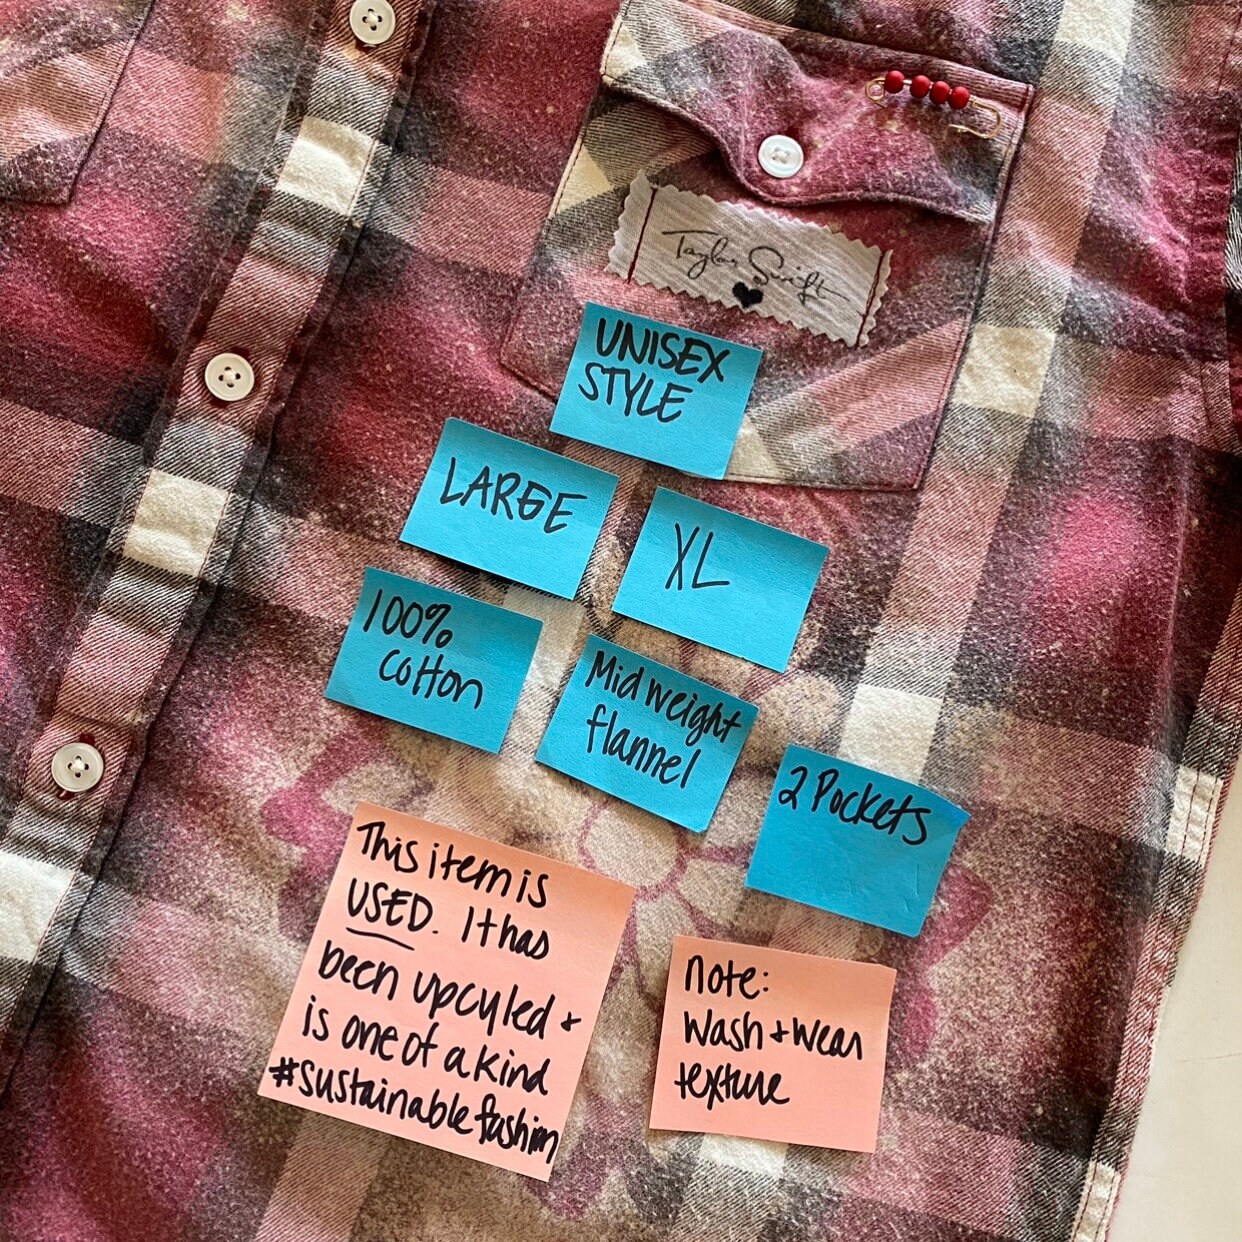 Taylor Swift
UNISEX
STYLE
LARGE
XL
100%
cotton
Mid weight
flannel
2 Pockets
This item is
USED. It has
been upcyled +
is one of a kind
#sustainable fashion
note:
wash + wear
texture